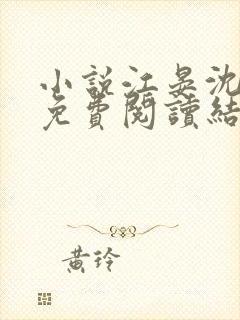 小說江晏沈
免費閱讀結
黃玲